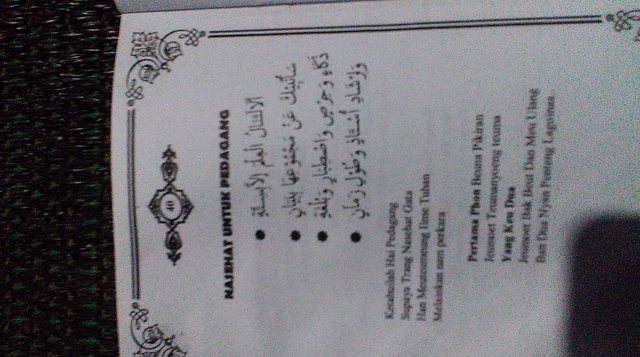 40
NASEHAT UNTUK PEDAGANG
• ألا لا تنال العلم إلا بستة
• سأنبيك عن مجموعها ببيان
• ذكاء وحرص واصطبار وبلغة
• وإرشاد أستاذ وطول زمان
Ketahuilah Hai Pedagang
Supaya Trang Nasehat Gata
Han Meuteumeung Ilme Tuhan
Melainkan nam perkara
Pertama Phon Beuna Pikiran
Jeumeuet Teumanyong teuma
Yang Keu Dua
Jeumeuet Bak Beut Dan Meu Ulang
Ban Dua Nyan Penteng Lagoina